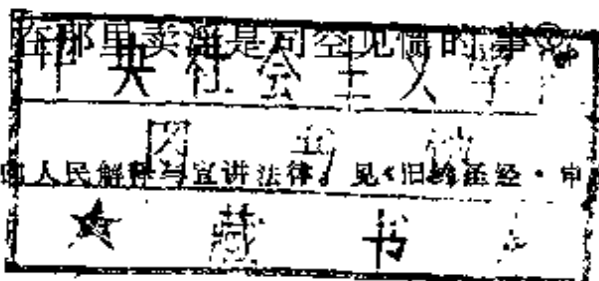 在那里卖淫是司空见惯的事②
中央社会主义学
图书馆
向人民解释与宣讲法律。见《旧约圣经·申
★藏书